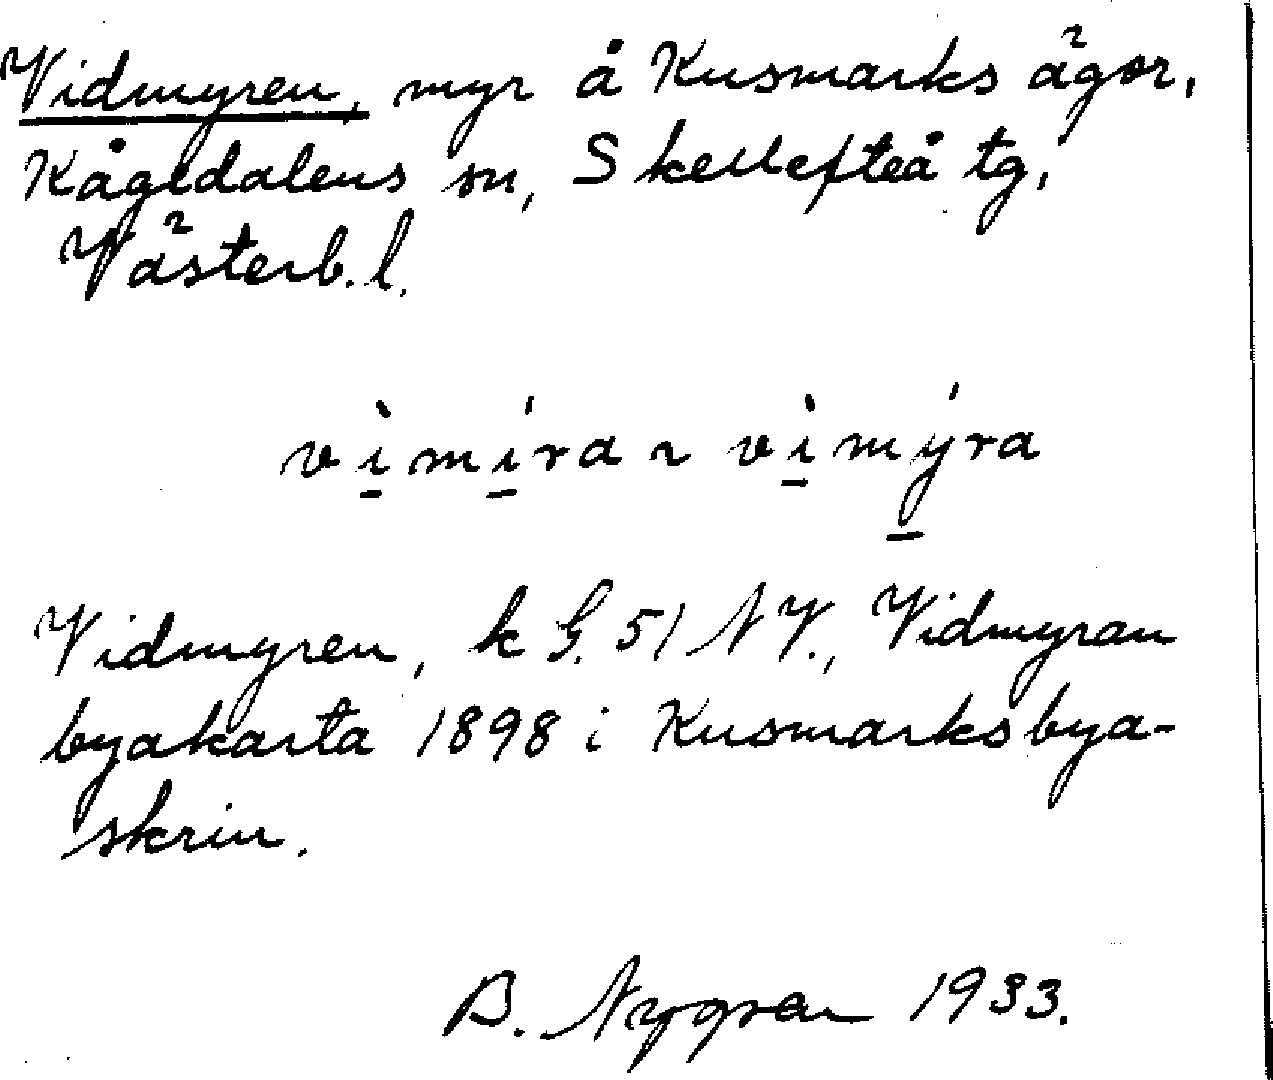 Vidmyren, myr å Kusmarks ägor,
Kågedalens sn, Skellefteå tg,
Västerb. l.
vìmíra ~ vìmýra
Vidmyren, k G. 51 NV., Vidmyran
byakarta 1898 i Kusmarks bya-
skrin.
B. Nygren 1933.